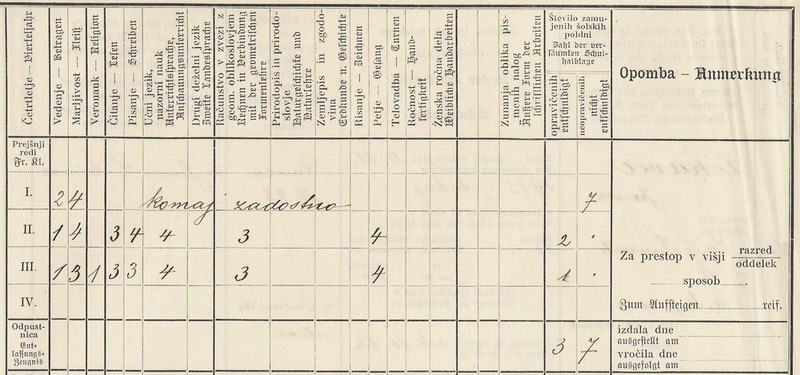 Četrtletje — Vierteljahr
Vedenje — Betragen
Marljivost — Fleiß
Veronauk — Religion
Čitanje — Lesen
Pisanje — Schreiben
Učni jezik,
nazorni nauk
Unterrichtssprache,
Anschauungsunterricht
Drugi deželni jezik
Zweite Landessprache
Računstvo v zvezi z
geom. oblikoslovjem
Rechnen in Verbindung
mit der geometrischen
Formenlehre
Prirodopis in prirodo-
slovje
Naturgeschichte und
Naturlehre
Zemljepis in zgodo-
vina
Erdkunde u. Geschichte
Risanje — Zeichnen
Petje — Gesang
Telovadba — Turnen
Ročnost — Hand-
fertigkeit
Ženska ročna dela
Weibliche Handarbeiten
Zunanja oblika pis-
menih nalog
Äußere Form der
schriftlichen Arbeiten
Število zamu-
jenih šolskih
poldni
Zahl der ver-
säumten Schul-
halbtage
opravičenih
entschuldigt
neopravičenih
nicht
entschuldigt
Opomba — Anmerkung
Prejšnji
redi
Fr. Kl.
I. 2 4 komaj zadostno 7
II. 1 4 3 4 4 3 4 2 "
III. 1 3 1 3 3 4 3 4 1 "
IV.
Za prestop v višji razred
oddelek
sposob
Zum Aufsteigen reif.
Odpust-
nica
Ent-
lassungs-
Zeugnis
3 7
izdala dne
ausgestellt am
vročila dne
ausgefolgt am